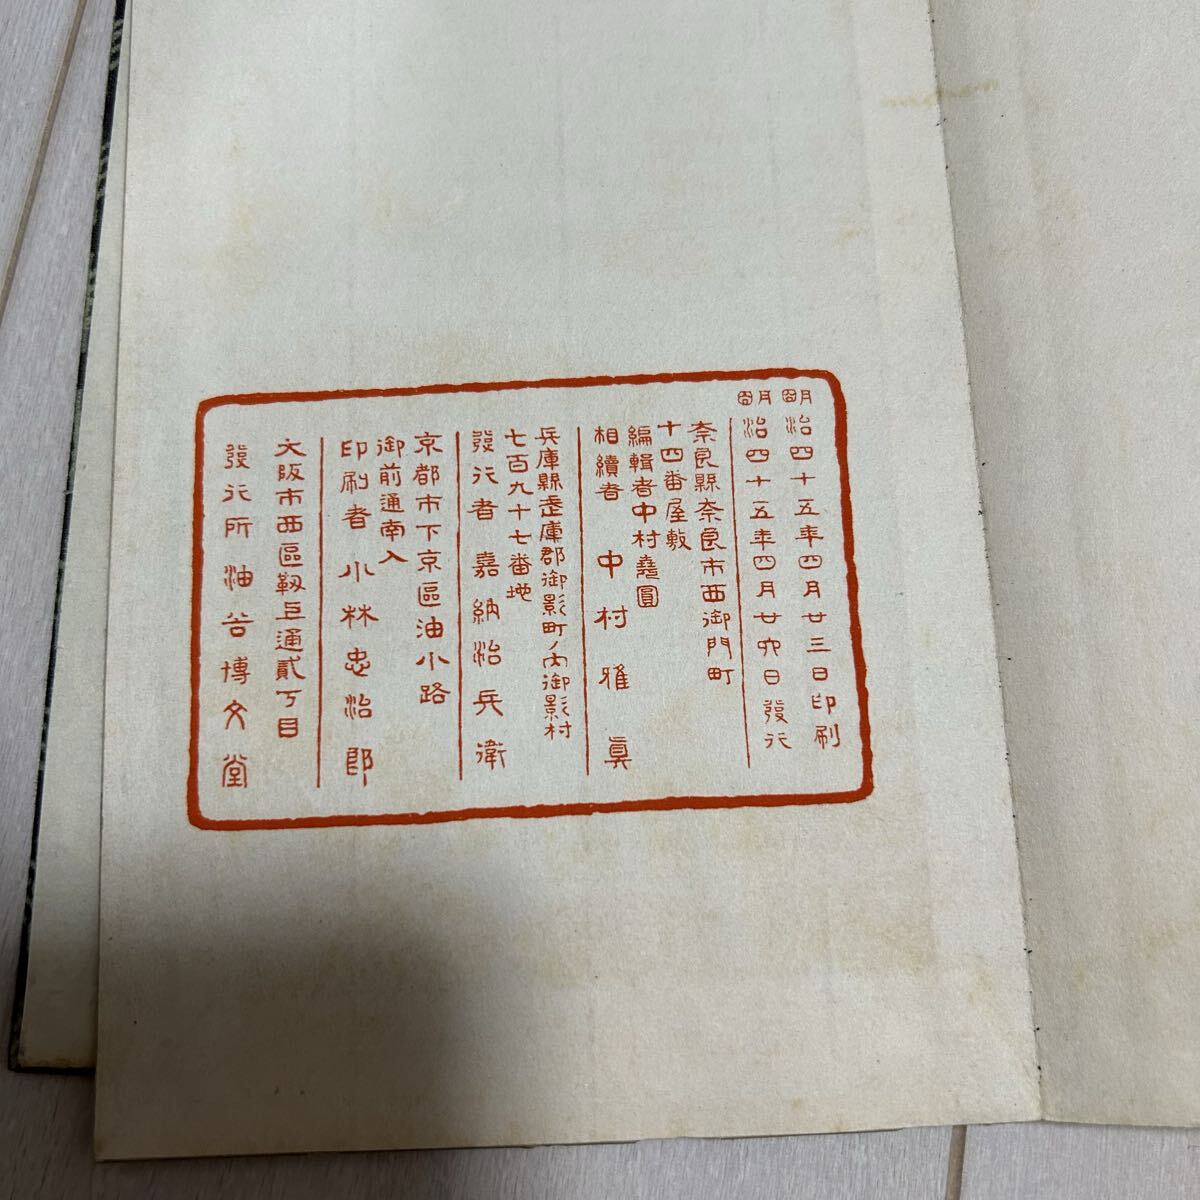 明治四十五年四月廿三日印刷
明治四十五年四月廿六日發行
奈良縣奈良市西御門町
十四番屋敷
編輯者中村堯圓
相續者 中村雅眞
兵庫縣武庫郡御影町ノ內御影村
七百九十七番地
發行者 嘉納治兵衛
京都市下京區油小路
御前通南入
印刷者 小林忠治郎
大阪市西區靱上通貳丁目
發行所 油谷博文堂